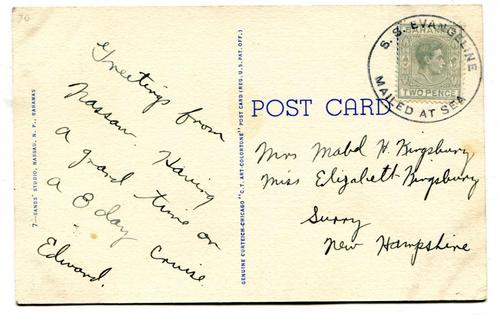 70
Greetings from
Nassau. Having
a grand time on
a 8 day cruise.
Edward.
7—SANDS' STUDIO, NASSAU, N. P., BAHAMAS
GENUINE CURTEICH-CHICAGO "C. T. ART-COLORTONE" POST CARD (REG. U. S. PAT. OFF.)
POST CARD
S. S. EVANGELINE
MAILED AT SEA
BAHAMAS
TWO PENCE
Mrs Mabel H. Kingsbury
Miss Elizabeth Kingsbury
Surry
New Hampshire